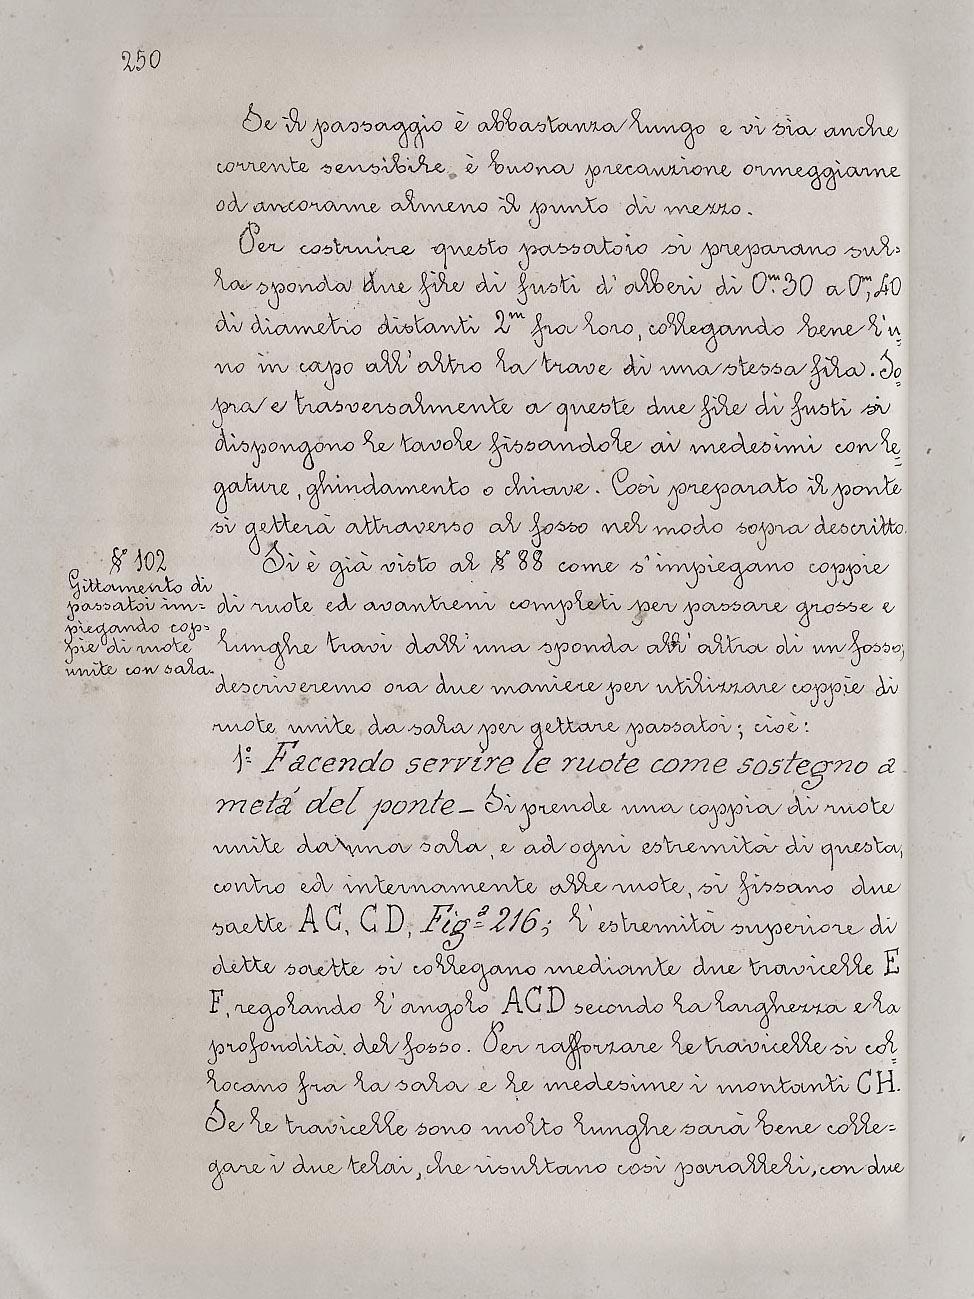 250
Se il passaggio è abbastanza lungo e vi sia anche
corrente sensibile è buona precauzione ormeggiarne
od ancorarne almeno il punto di mezzo.
Per costruire questo passatoio si preparano sul=
la sponda due file di fusti d'alberi di 0,m30 a 0,m40
di diametro distanti 2m fra loro, collegando bene l'u=
no in capo all'altro la trave di una stessa fila. So=
pra e trasversalmente a queste due file di fusti si
dispongono le tavole fissandole ai medesimi con le=
gature, ghindamento o chiave. Così preparato il ponte
si getterà attraverso al fosso nel modo sopra descritto.
§° 102
Gittamento di
passatoi im=
piegando cop=
pie di ruote
unite con sala.
Si è già visto al §° 88 come s'impiegano coppie
di ruote ed avantreni completi per passare grosse e
lunghe travi dall'una sponda all'altra di un fosso;
descriveremo ora due maniere per utilizzare coppie di
ruote unite da sala per gettare passatoi; cioè:
1° Facendo servire le ruote come sostegno a
metà del ponte_ Si prende una coppia di ruote
unite da una sala, e ad ogni estremità di questa,
contro ed internamente alle ruote, si fissano due
saette AC, CD, Figª 216; l'estremità superiore di
dette saette si collegano mediante due travicelle E
F, regolando l'angolo ACD secondo la larghezza e la
profondità del fosso. Per rafforzare le travicelle si col=
locano fra la sala e le medesime i montanti CH.
Se le travicelle sono molto lunghe sarà bene colle=
gare i due telai, che risultano così paralleli, con due